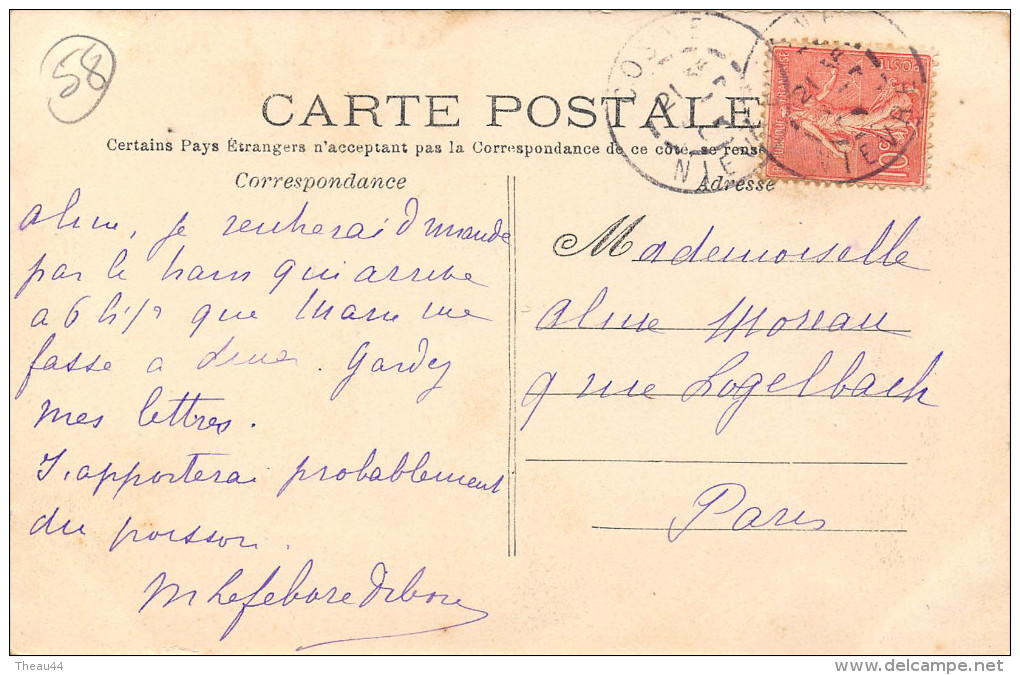 58
CARTE POSTALE
Certains Pays Étrangers n'acceptent pas la Correspondance de ce côté, se rense
Correspondance
Adresse
COSNE
21
NIEVRE
NIEVRE
POSTES
10
Aline, je rentrerai Dimanche
par le train qui arrive
a 6 h 1/2 que Marie me
fasse a diner. Gardez
mes lettres.
J'apporterai probablement
du poisson.
MLefebvre
Mademoiselle
Aline Moreau
9 rue Logelbach
Paris
Theau44
delcampe.net